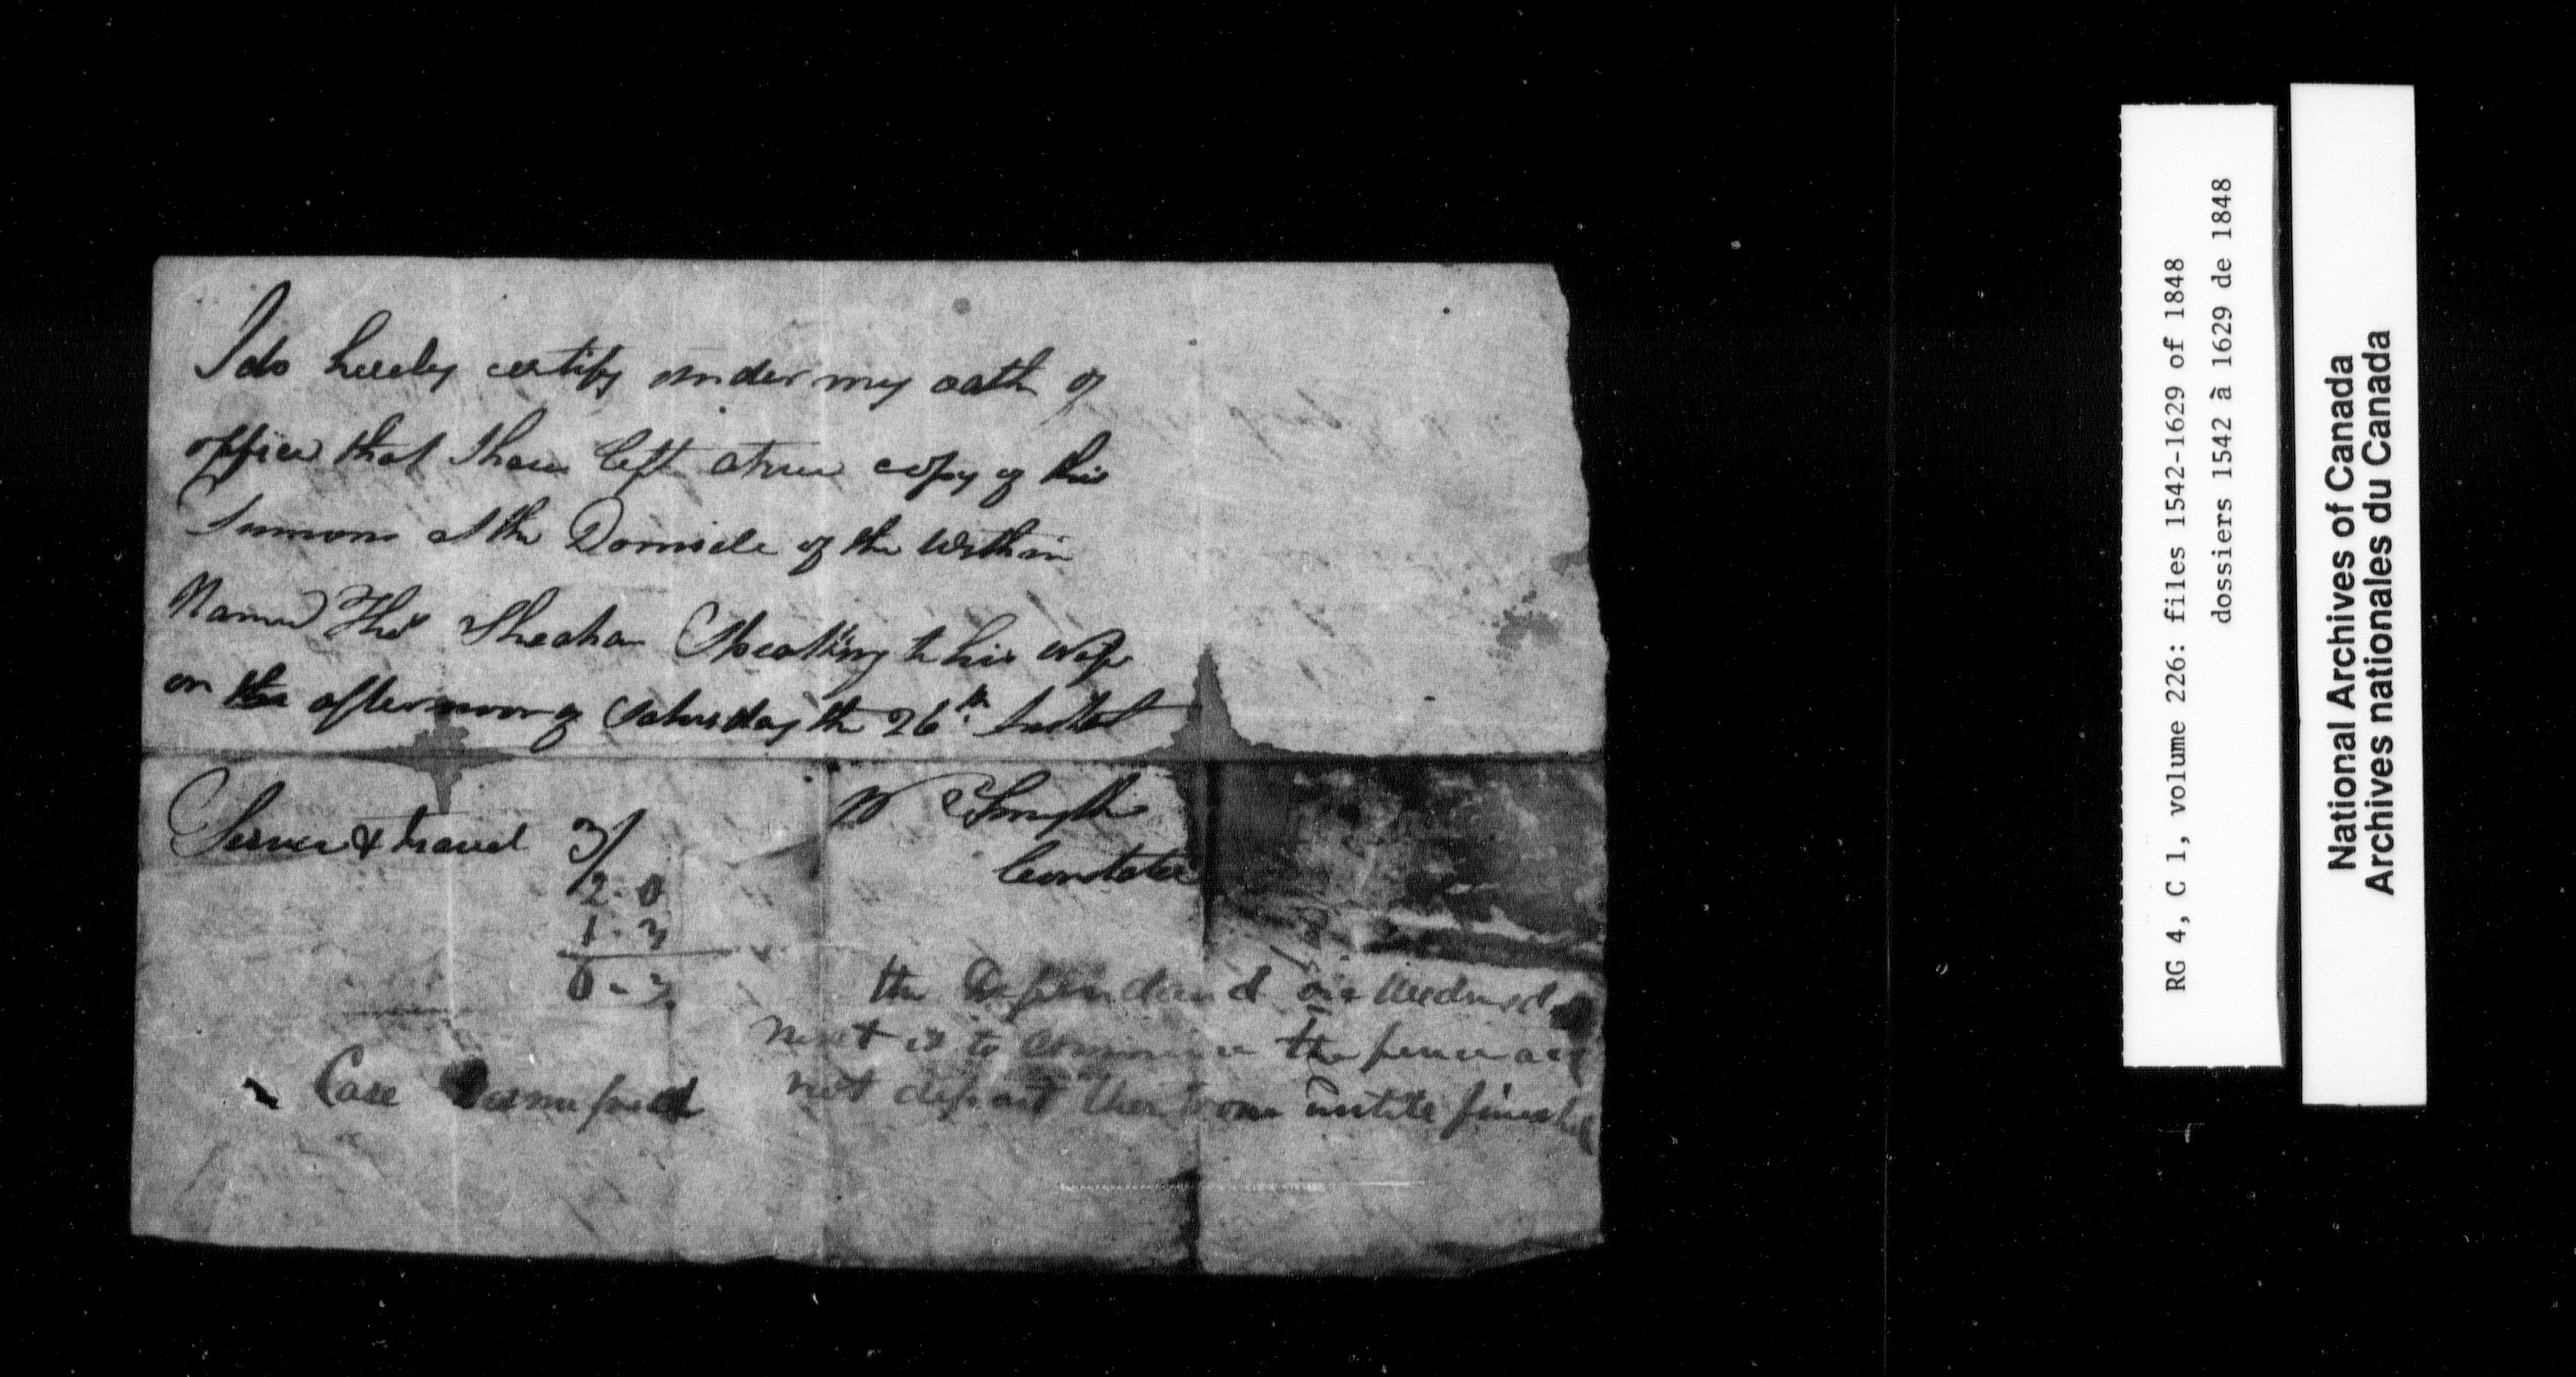 I do hereby certify under my oath of
office that I have left a true copy of this
Sumons at the Domicile of the Within
Named Thos Sheehan Speaking to his wife
on the afternoon of Saturday the 26th Instant
W Smyth
Constable
Service & travel 3/
2-0
1-3
6-3
the Defendand on Wednesday
next is to commence the fence and
not depart therefrom untill finished
Case
RG 4, C 1, volume 226: files 1542-1629 of 1848
dossiers 1542 à 1629 de 1848
National Archives of Canada
Archives nationales du Canada